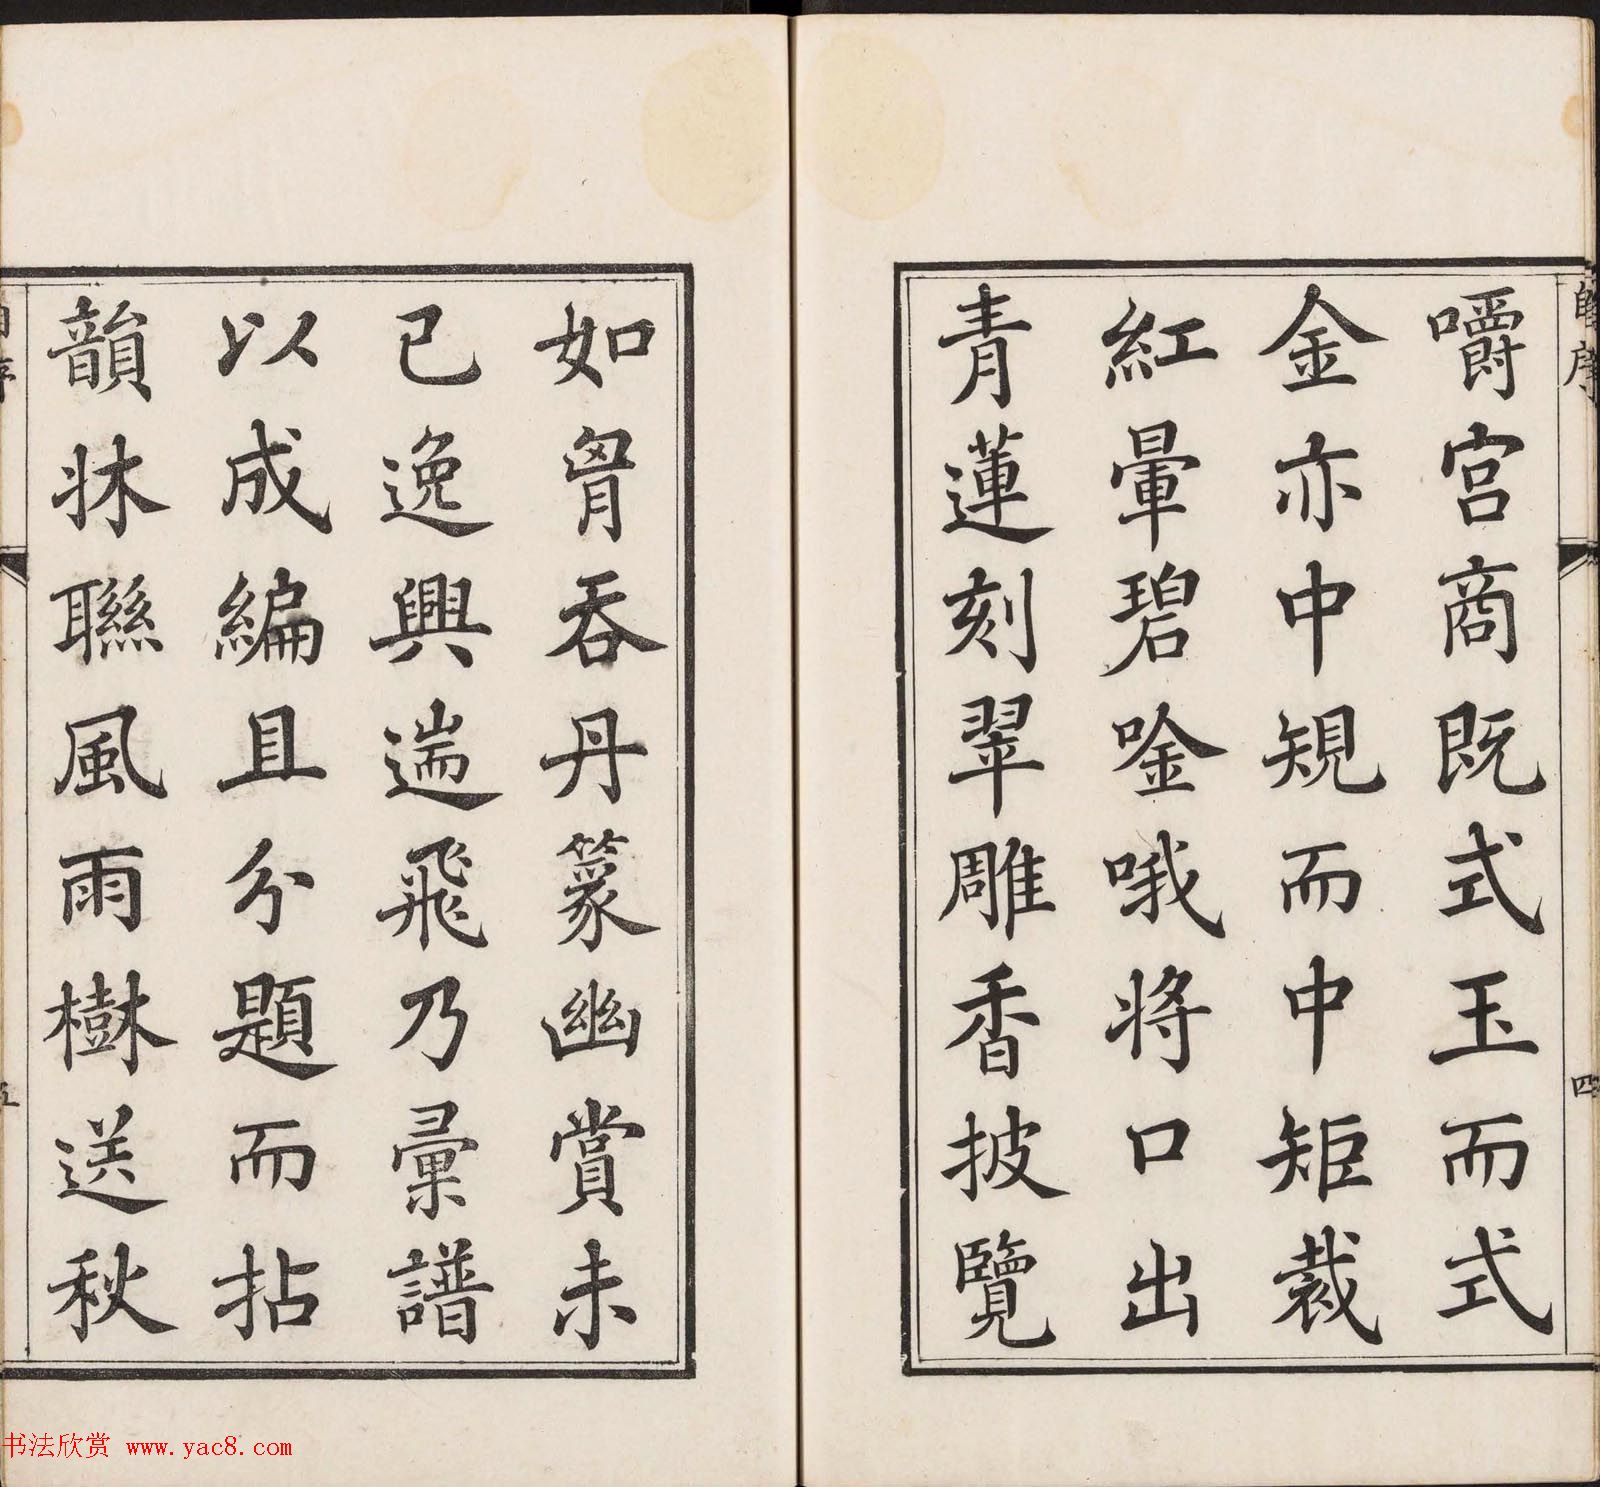 嚼宮商既式玉而式
金亦中規而中矩裁
紅暈碧唫哦將口出
青蓮刻翠雕香披覽
如胷吞丹篆幽賞未
已逸興遄飛乃彙譜
以成編且分題而拈
韻牀聯風雨樹送秋
四
五
书法欣赏 www.yac8.com